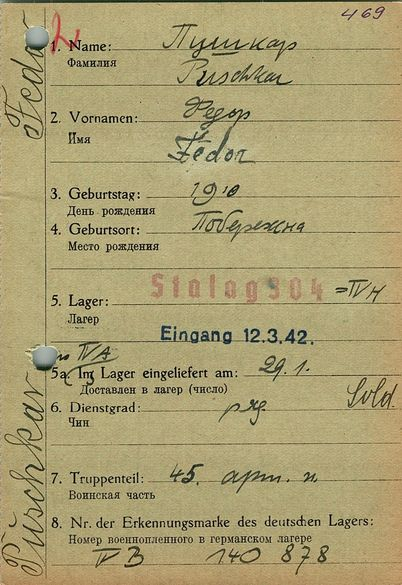 469
2.
1. Name: Пушкар
Фамилия
Puschkar
2. Vornamen: Федор
Имя
Fedor
3. Geburtstag: 1910
День рождения
4. Geburtsort: Побережна
Место рождения
Stalag 304 =IV H
5. Lager:
Лагер
Eingang 12.3.42.
IV A
5a, In Lager eingeliefert am: 29.1.
Доставлен в лагер (число)
Sold.
6. Dienstgrad: ряд.
Чин
7. Truppenteil: 45. арт. п.
Воинская часть
8. Nr. der Erkennungsmarke des deutschen Lagers:
Номер военнопленного в германском лагере
IV B 140 878
Puschkar Fedor